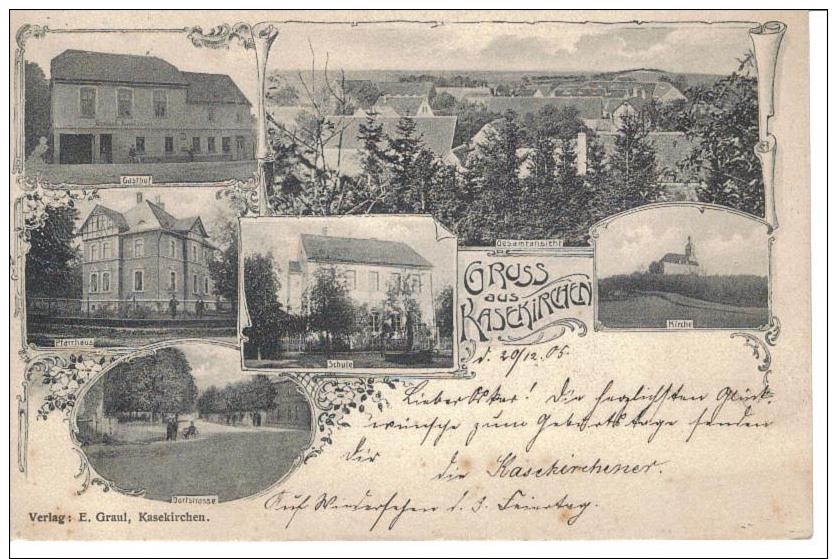 Gasthof
Gesamtansicht
Pfarrhaus
Schule
Kirche
GRUSS
aus
KASEKIRCHEN
d. 20/12.05.
Lieber Oskar! Die herzlichsten Glück-
wünsche zum Geburtstage senden
dir
die Kasekirchener.
Auf Wiedersehen d. 3. Feiertag.
Dorfstrasse
Verlag: E. Graul, Kasekirchen.